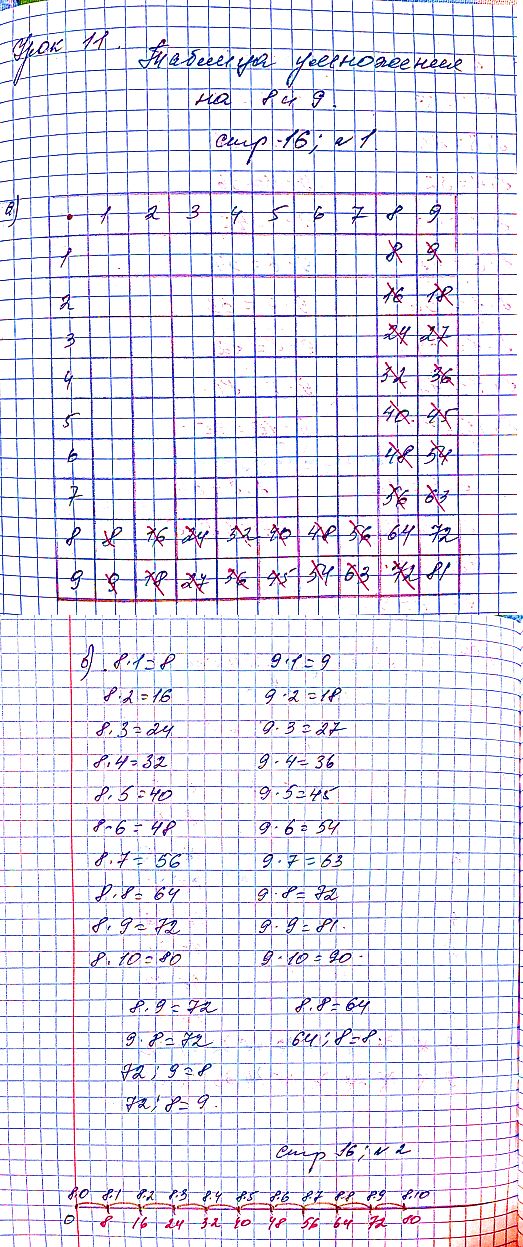 Урок 11.
Таблица умножения
на 8 и 9.
стр-16; №1
а) • 1 2 3 4 5 6 7 8 9
1 8 9
2 16 18
3 24 27
4 32 36
5 40 45
6 48 54
7 56 63
8 8 16 24 32 40 48 56 64 72
9 9 18 27 36 45 54 63 72 81
б) 8·1=8 9·1=9
8·2=16 9·2=18
8·3=24 9·3=27
8·4=32 9·4=36
8·5=40 9·5=45
8·6=48 9·6=54
8·7=56 9·7=63
8·8=64 9·8=72
8·9=72 9·9=81.
8·10=80 9·10=90.
8·9=72 8·8=64
9·8=72 64:8=8.
72:9=8
72:8=9.
стр 16; №2
8·0 8·1 8·2 8·3 8·4 8·5 8·6 8·7 8·8 8·9 8·10
0 8 16 24 32 40 48 56 64 72 80